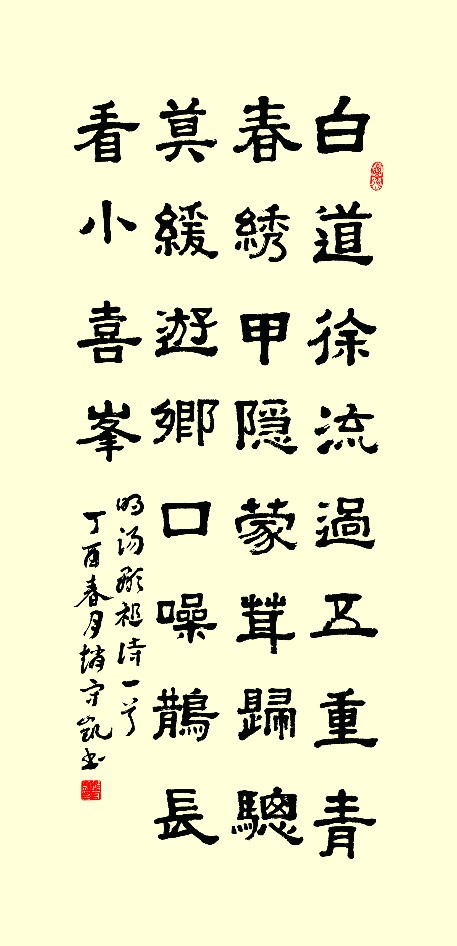 白道徐流過五重青
春綉甲隐蒙茸歸驄
莫緩遊鄉口噪鵲長
看小喜峯
明湯顯祖詩一首
丁酉春月趙守凱書